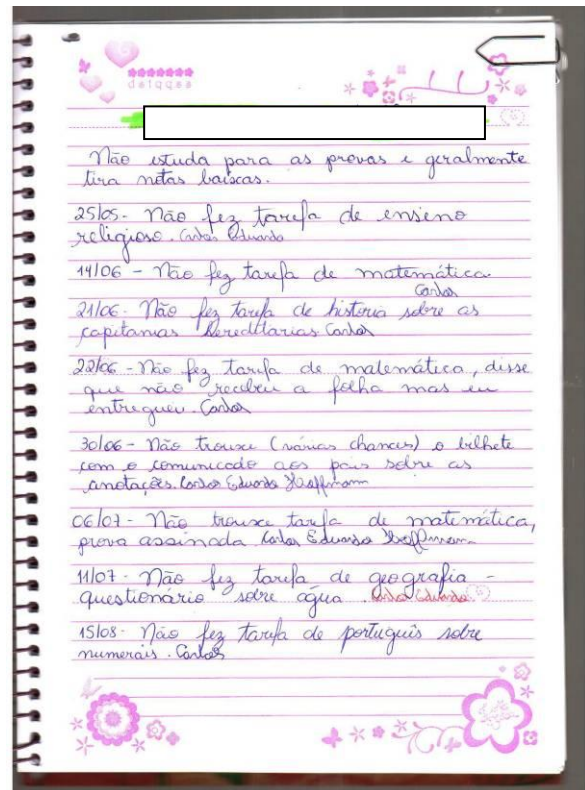 datqqaa
Não estuda para as provas e geralmente
tira notas baixas.
25/05- Não fez tarefa de ensino
religioso. Carlos Eduardo
14/06 - Não fez tarefa de matemática.
Carlos
21/06- Não fez tarefa de historia sobre as
capitanias Hereditarias Carlos
22/06 - Não fez tarefa de matemática, disse
que não recebeu a folha mas eu
entreguei. Carlos
30/06 - Não trouxe (várias chances) o bilhete
com o comunicado aos pais sobre as
anotações. Carlos Eduardo Hoffmann
06/07 - Não trouxe tarefa de matemática,
prova assinada Carlos Eduardo Hoffmann
11/07 - Não fez tarefa de geografia -
questionário sobre água. Carlos Eduardo
15/08- Não fez tarefa de português sobre
numerais. Carlos